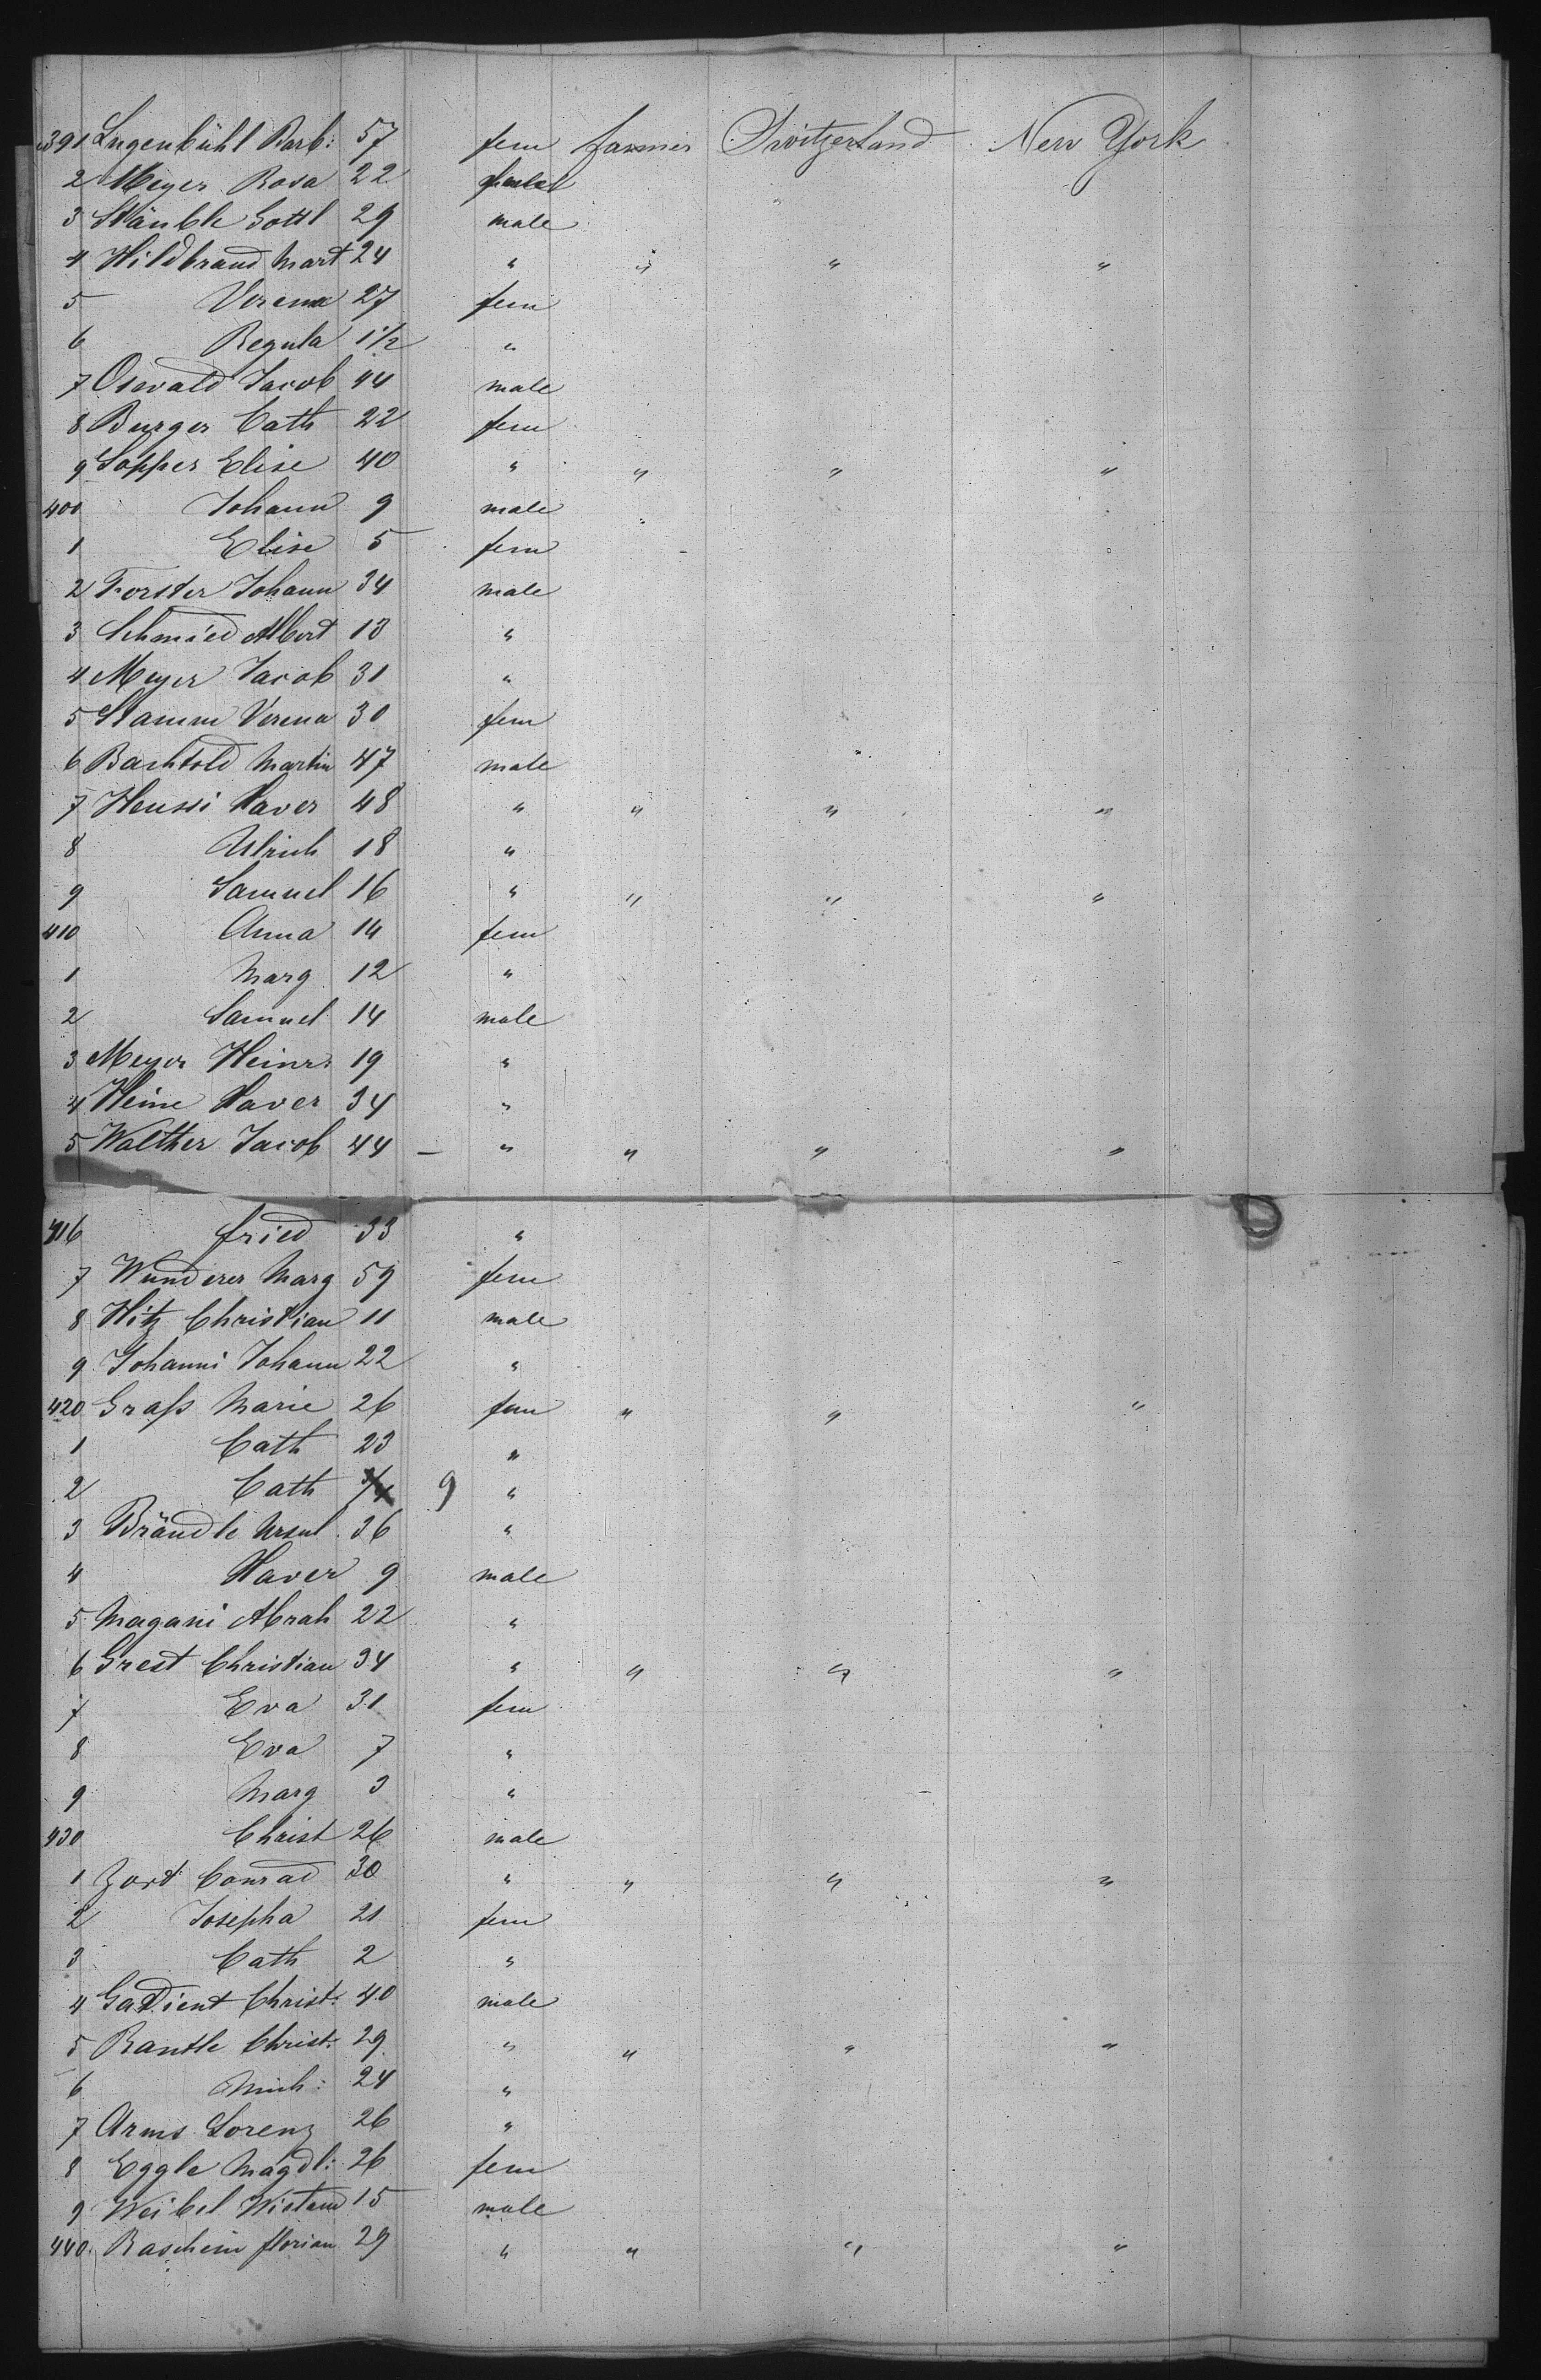 391 Lugenbühl Barb: 57 fem farmer Switzerland New York
2 Meyer Rosa 22
3 Stäuble Gottl 29 male
4 Hildbrand Mart 24 " " " "
5 Verena 27 fem
6 Regula 1 1/2 "
7 Oswald Jacob 44 male
8 Burger Cath 22 fem
9 Sopper Elise 40 " " " "
400 Johann 9 male
1 Elise 5 fem
2 Forster Johann 34 male
3 Schmied Albert 13 "
4 Meyer Jacob 31 "
5 Stamm Verena 30 fem
6 Bachtold Martin 47 male
7 Heussi Xaver 48 " " " "
8 Ulrich 18 "
9 Samuel 16 " " " "
410 Anna 14 fem
1 Marg 12 "
2 Samuel 14 male
3 Meyer Heinr: 19 "
4 Heine Xaver 34 "
5 Walther Jacob 44 — " " " "
416 Fried 33 "
7 Wunderer Marg 59 fem
8 Hitz Christian 11 male
9 Johanni Johann 22 "
420 Graß Marie 26 fem " " "
1 Cath 23 "
2 Cath 9 "
3 Brändle Ursul 36 "
4 Xaver 9 male
5 Magani Abrah 22 "
6 Grest Christian 34 " " " "
7 Eva 31 fem
8 Eva 7 "
9 Marg 3 "
430 Christ 26 male
1 Zort Conrad 30 " " " "
2 Josepha 21 fem
3 Cath 2 "
4 Gadient Christ: 40 male
5 Bantle Christ: 29 " " " "
6 Mich: 24 "
7 Arms Lorenz 26 "
8 Eggle Magdl: 26 fem
9 Weibel 15 male
440 Raschein Florian 29 " " " "